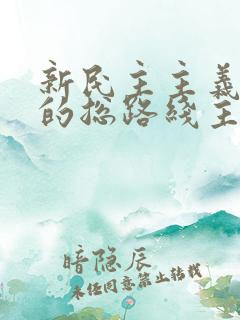 新民主主义
的总路线主
暗隐辰
未经同意禁止转载